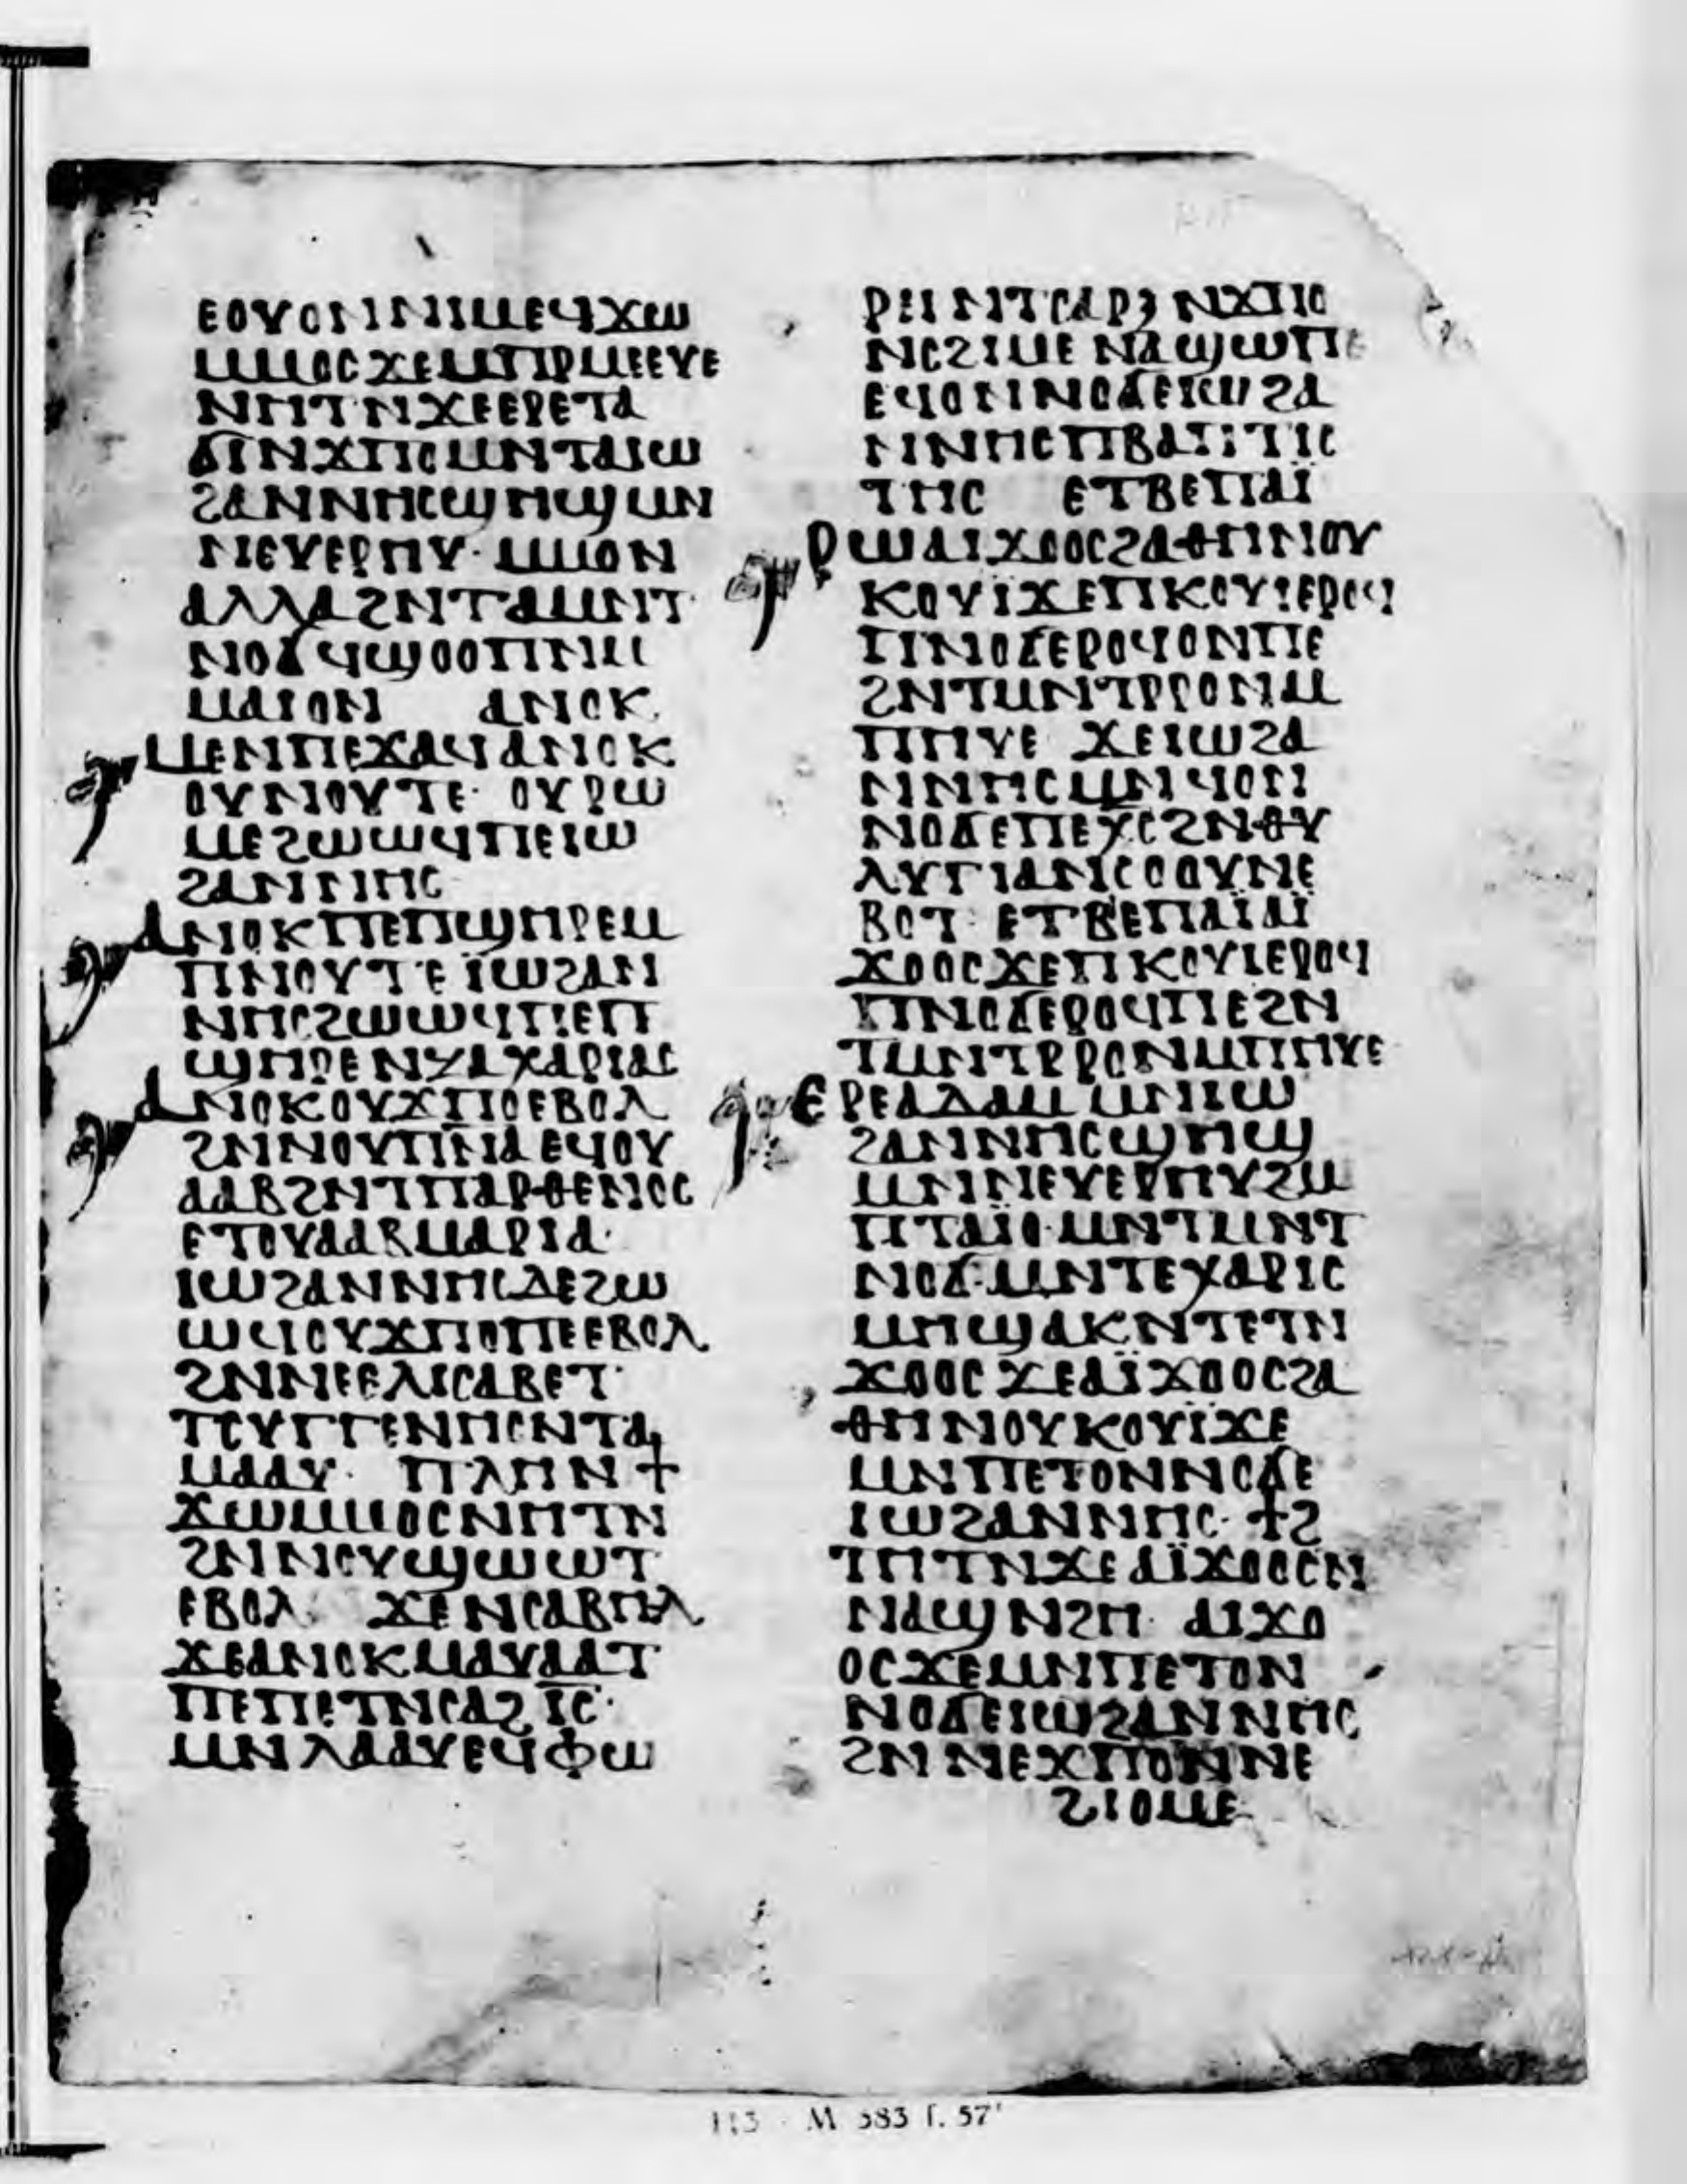 ⲉⲟⲩⲟⲛⲛⲓⲙⲉϥϫⲱ
ⲙⲙⲟⲥϫⲉⲙⲡⲣⲙⲉⲉⲩⲉ
ⲛⲏⲧⲛϫⲉⲉⲣⲉⲧⲁ
ϭⲓⲛϫⲡⲟⲙⲛⲧⲁⲓⲱ
ϩⲁⲛⲛⲏⲥϣⲏϣⲙⲛ
ⲛⲉⲩⲉⲣⲏⲩ· ⲙⲙⲟⲛ
ⲁⲗⲗⲁϩⲛⲧⲁⲙⲛⲧ
ⲛⲟϭ ϥϣⲟⲟⲡⲛⲙ
ⲙⲁⲓⲟⲛ ⲁⲛⲟⲕ
ⲙⲉⲛⲡⲉϫⲁϥⲁⲛⲟⲕ
ⲟⲩⲛⲟⲩⲧⲉ· ⲟⲩⲣⲱ
ⲙⲉϩⲱⲱϥⲡⲉⲓⲱ
ϩⲁⲛⲛⲏⲥ
ⲁⲛⲟⲕⲡⲉⲡϣⲏⲣⲉⲙ
ⲡⲛⲟⲩⲧⲉⲓ̈ⲱϩⲁⲛ
ⲛⲏⲥϩⲱⲱϥⲡⲉⲡ
ϣⲏⲣⲉⲛⲍⲁⲭⲁⲣⲓⲁⲥ
ⲁⲛⲟⲕⲟⲩϫⲡⲟⲉⲃⲟⲗ
ϩⲛⲛⲟⲩⲡⲛⲁⲉϥⲟⲩ
ⲁⲁⲃϩⲛⲧⲡⲁⲣⲑⲉⲛⲟⲥ
ⲉⲧⲟⲩⲁⲁⲃⲙⲁⲣⲓⲁ·
ⲓⲱϩⲁⲛⲛⲏⲥⲇⲉϩⲱ
ⲱϥⲟⲩϫⲡⲟⲡⲉⲉⲃⲟⲗ
ϩⲛⲛⲉⲉⲗⲓⲥⲁⲃⲉⲧ·
ⲧⲥⲩⲅⲅⲉⲛⲏⲥⲛⲧⲁ
ⲙⲁⲁⲩ· ⲡⲗⲏⲛ ϯ
ϫⲱⲙⲙⲟⲥⲛⲏⲧⲛ
ϩⲛⲛⲟⲩϣⲱⲱⲧ
ⲉⲃⲟⲗ ϫⲉⲛⲥⲁⲃⲏⲗ
ϫⲉⲁⲛⲟⲕⲙⲁⲩⲁⲁⲧ
ⲡⲉⲡⲉⲧⲛⲥⲁϩ ⲓ̅ⲥ̅·
ⲙⲛⲗⲁⲁⲩⲉϥⲫⲱ
ⲣⲉⲓⲛⲧⲥⲁⲣⲝ ⲛϫⲡⲟ
ⲛⲥϩⲓⲙⲉ ⲛⲁϣⲱⲡⲉ
ⲉϥⲟⲛⲛⲟϭⲉⲓⲱϩⲁ
ⲛⲛⲏⲥⲡⲃⲁⲡⲧⲓⲥ
ⲧⲏⲥ ⲉⲧⲃⲉⲡⲁⲓ̈
ⲣⲱⲁⲓϫⲟⲟⲥϩⲁⲑⲏⲛⲟⲩ
ⲕⲟⲩⲓ̈ϫⲉⲡⲕⲟⲩⲓⲉⲣⲟϥ
ⲡⲛⲟϭⲉⲣⲟϥⲟⲛⲡⲉ
ϩⲛⲧⲙⲛⲧⲣⲣⲟⲛⲙ
ⲡⲏⲩⲉ ϫⲉⲓⲱϩⲁ
ⲛⲛⲏⲥⲙⲛϥⲟⲛ
ⲛⲟϭⲉⲡⲉⲭⲥϩⲛⲑⲩ
ⲗⲩⲅⲓⲁⲛⲥⲟⲟⲩⲛⲉ
ⲃⲟⲧ· ⲉⲧⲃⲉⲡⲁⲓ̈ⲁⲓ̈
ϫⲟⲟⲥϫⲉⲡⲕⲟⲩⲓⲉⲣⲟϥ
ⲡⲛⲟϭⲉⲣⲟϥⲡⲉϩⲛ
ⲧⲙⲛⲧⲣⲣⲟⲛⲙⲡⲏⲩⲉ
ⲉⲣⲉⲁⲇⲁⲙⲙⲛⲓⲱ
ϩⲁⲛⲛⲏⲥϣⲏϣ
ⲙⲛⲛⲉⲩⲉⲣⲏⲩϩⲙ
ⲡⲧⲁⲓ̈ⲟ·ⲙⲛⲧⲙⲛⲧ
ⲛⲟϭ·ⲙⲛⲧⲉⲭⲁⲣⲓⲥ
ⲙⲏϣⲁⲕⲛⲧⲉⲧⲛ
ϫⲟⲟⲥ ϫⲉⲁⲓ̈ϫⲟⲟⲥϩⲁ
ⲑⲏⲛⲟⲩⲕⲟⲩⲓ̈ϫⲉ
ⲙⲛⲡⲉⲧⲟⲛⲛⲟϭⲉ
ⲓⲱϩⲁⲛⲛⲏⲥ· ϯϩ
ⲧⲏⲧⲛϫⲉⲁⲓ̈ϫⲟⲟⲥⲛ
ⲛⲁϣⲛϩⲏ· ⲁⲓϫⲟ
ⲟⲥϫⲉⲙⲛⲡⲉⲧⲟⲛ
ⲛⲟϭⲉⲓⲱϩⲁⲛⲛⲏⲥ
ϩⲛⲛⲉϫⲡⲟⲛⲛⲉ
ϩⲓⲟⲙⲉ
M 583 f. 57